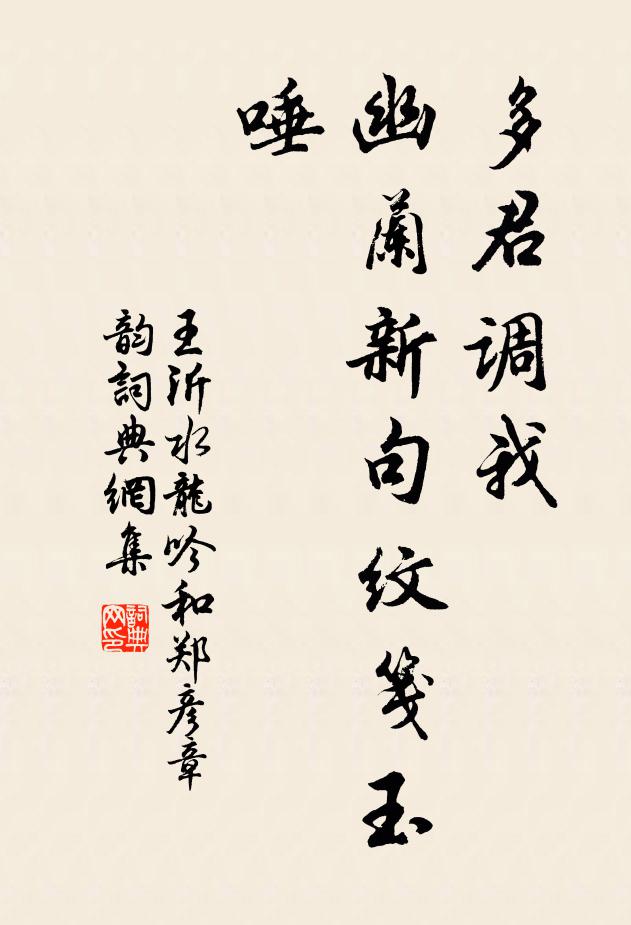 多君调我
幽蘭新句纹笺玉
唾
王沂水龍吟和郑彦章
韵詞典網集
詞典
网印